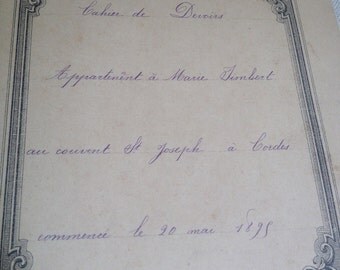 Cahier de Devoirs
Appartenent à Marie Jimbert
au couvent St Joseph à Cordes
commencé le 20 mai 1895